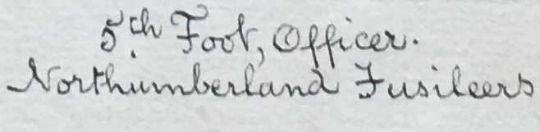 5th Foot, Officer.
Northumberland Fusileers